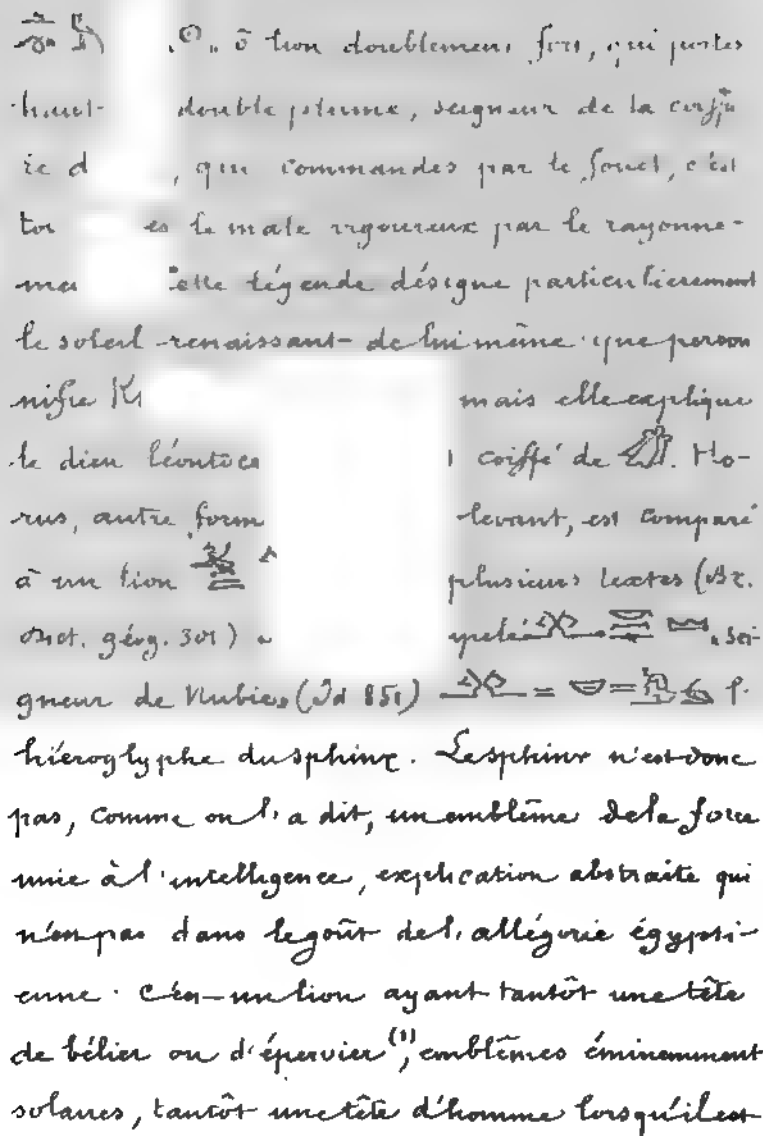 ô lion doublement fort, qui portes
haut double plume, seigneur de la
qui commandes par le fouet, c'est
le mâle vigoureux par le rayonne-
légende désigne particulièrement
le soleil renaissant de lui même que person
nifie mais elle explique
le dieu coiffé de Ho-
rus, autre levant, est comparé
à un lion plusieurs textes
géog. 301)
gneur de Nubie (Id 851)
hiéroglyphe du sphinx. Le sphinx n'est donc
pas, comme on l'a dit, un emblême de la force
unie à l'intelligence, explication abstraite qui
n'est pas dans le goût de l'allégorie égypti-
enne. C'est un lion ayant tantôt une tête
de bélier ou d'épervier (1), emblêmes éminemment
solaires, tantôt une tête d'homme lorsqu'il est